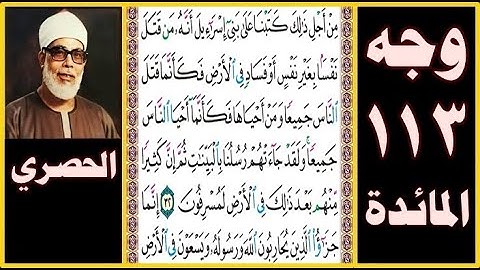 وجه
١١٣
المائدة
مِنْ أَجْلِ ذَٰلِكَ كَتَبْنَا عَلَىٰ بَنِىٓ إِسْرَٰٓءِيلَ أَنَّهُۥ مَن قَتَلَ
نَفْسًۢا بِغَيْرِ نَفْسٍ أَوْ فَسَادٍ فِى ٱلْأَرْضِ فَكَأَنَّمَا قَتَلَ
ٱلنَّاسَ جَمِيعًا وَمَنْ أَحْيَاهَا فَكَأَنَّمَآ أَحْيَا ٱلنَّاسَ
جَمِيعًا وَلَقَدْ جَآءَتْهُمْ رُسُلُنَا بِٱلْبَيِّنَٰتِ ثُمَّ إِنَّ كَثِيرًا
مِّنْهُم بَعْدَ ذَٰلِكَ فِى ٱلْأَرْضِ لَمُسْرِفُونَ ٣٢ إِنَّمَا
جَزَٰٓؤُا۟ ٱلَّذِينَ يُحَارِبُونَ ٱللَّهَ وَرَسُولَهُۥ وَيَسْعَوْنَ فِى ٱلْأَرْضِ
الحصري